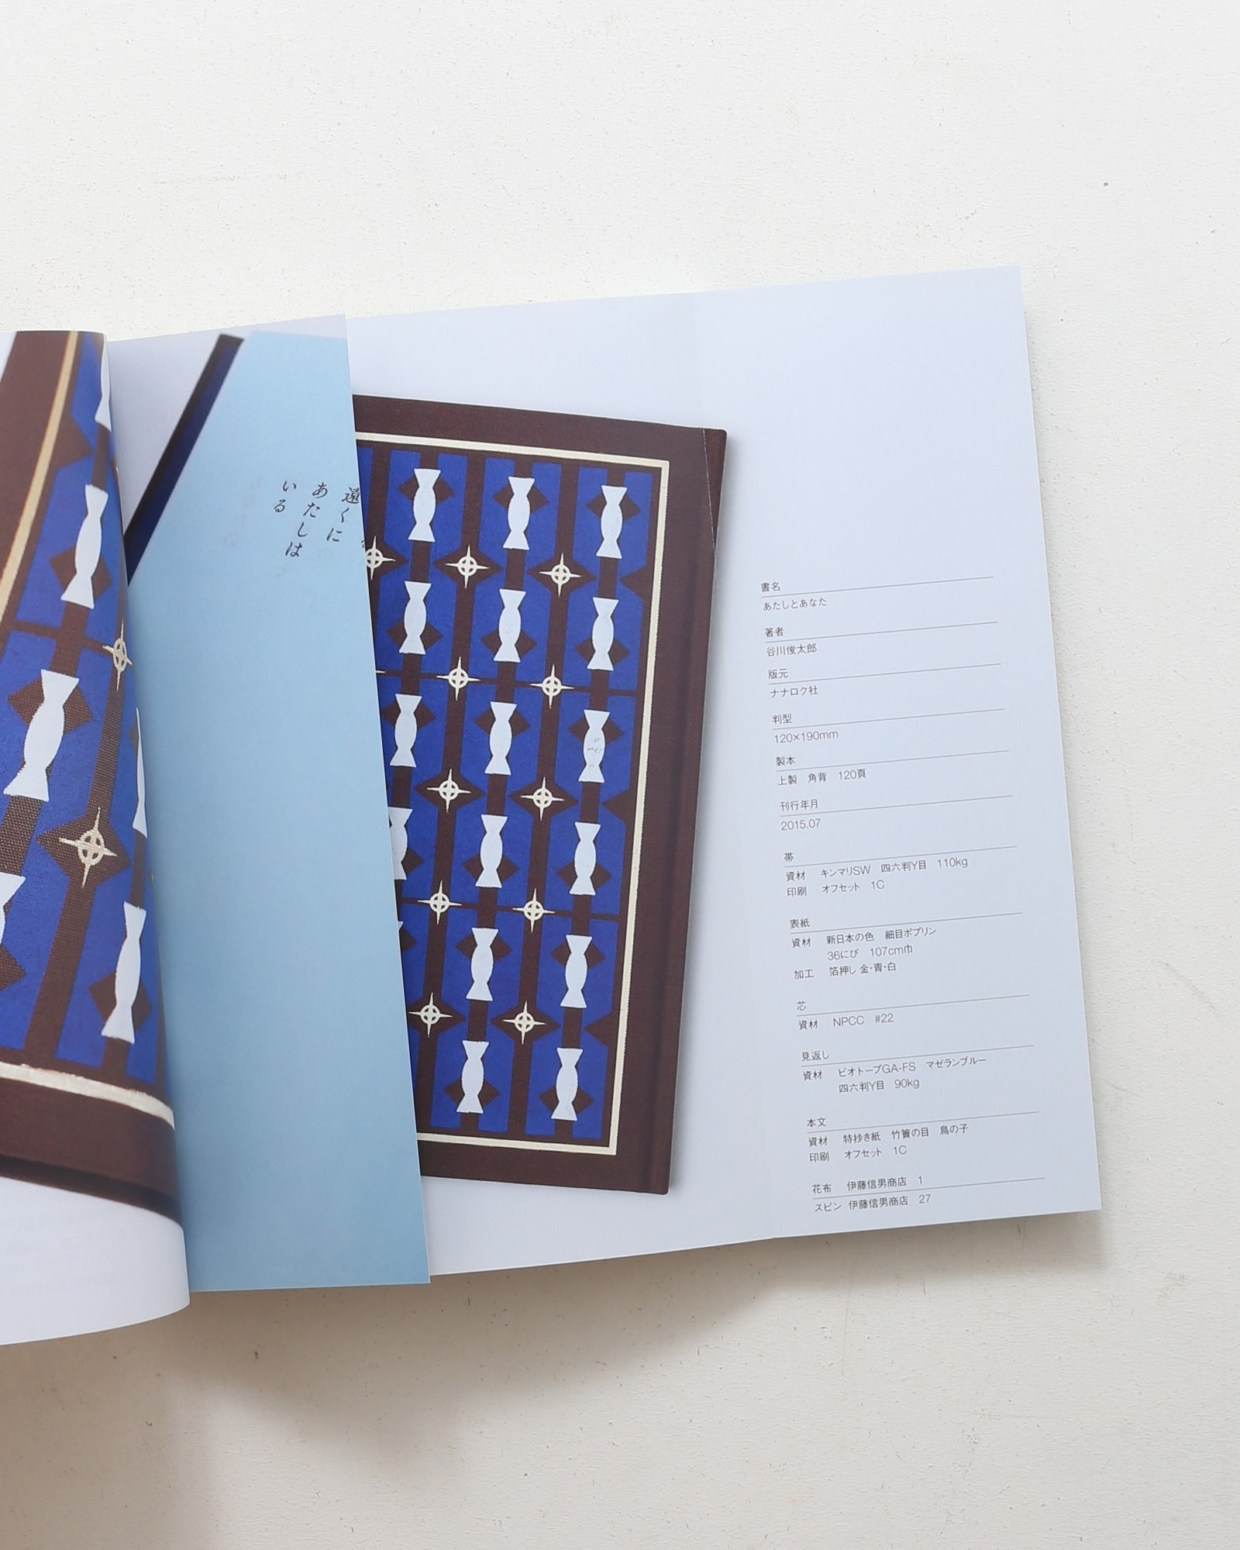 遠くに
あたしは
いる
書名
あたしとあなた
著者
谷川俊太郎
版元
ナナロク社
判型
120×190mm
製本
上製　角背　120頁
刊行年月
2015.07
帯
資材　キンマリSW　四六判Y目　110kg
印刷　オフセット　1C
表紙
資材　新日本の色　細目ポプリン
36にび　107cm巾
加工　箔押し 金・青・白
芯
資材　NPCC　#22
見返し
資材　ビオトープGA-FS　マゼランブルー
四六判Y目　90kg
本文
資材　特抄き紙　竹簀の目　鳥の子
印刷　オフセット　1C
花布　伊藤信男商店　1
スピン　伊藤信男商店　27